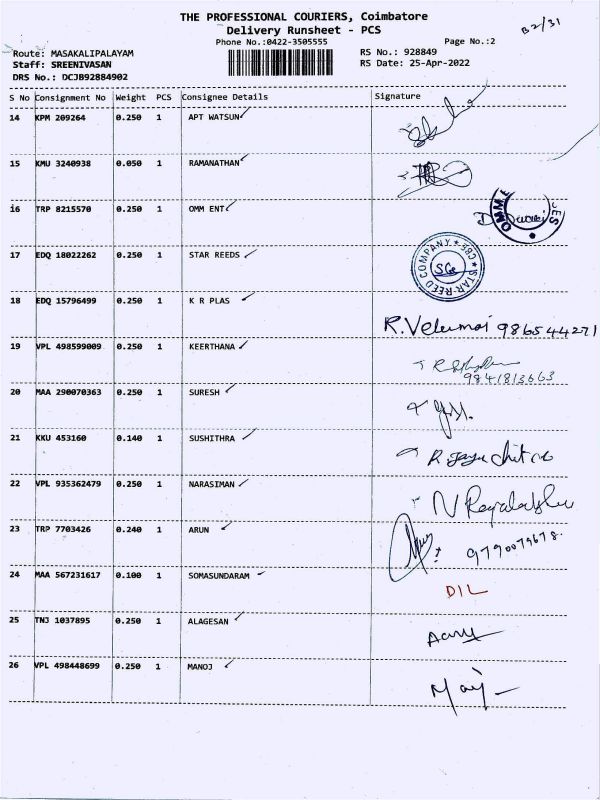 THE PROFESSIONAL COURIERS, Coimbatore
B2/31
Delivery Runsheet - PCS
Phone No.:0422-3505555
Page No.:2
Route: MASAKALIPALAYAM
RS No.: 928849
Staff: SREENIVASAN
RS Date: 25-Apr-2022
DRS No.: DCJB92884902
S No Consignment No Weight PCS Consignee Details Signature
14 KPM 209264 0.250 1 APT WATSUN
15 KMU 3240938 0.050 1 RAMANATHAN
16 TRP 8215570 0.250 1 OMM ENT
OMM
17 EDQ 18022262 0.250 1 STAR REEDS
STAR REED COMPANY ★ CBE ★
18 EDQ 15796499 0.250 1 K R PLAS
R.Velumai 9865444271
19 VPL 498599009 0.250 1 KEERTHANA
9841813663
20 MAA 290070363 0.250 1 SURESH
21 KKU 453160 0.140 1 SUSHITHRA
22 VPL 935362479 0.250 1 NARASIMAN
23 TRP 7703426 0.240 1 ARUN
9790079678.
24 MAA 567231617 0.100 1 SOMASUNDARAM
DIL
25 TNJ 1037895 0.250 1 ALAGESAN
26 VPL 498448699 0.250 1 MANOJ